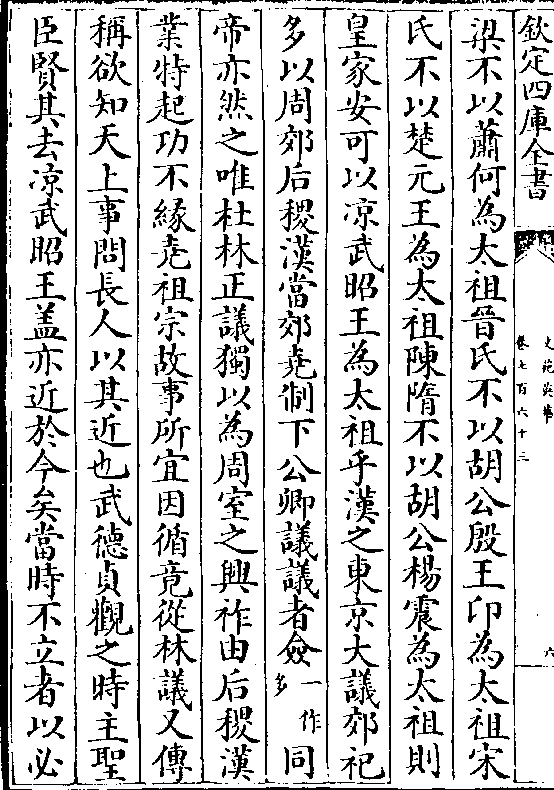 欽定四庫全書
文苑英華
卷七百六十三
六
梁不以蕭何為太祖晉氏不以胡公殷王卬為太祖宋
氏不以楚元王為太祖陳隋不以胡公楊震為太祖則
皇家安可以凉武昭王為太祖乎漢之東京大議郊祀
多以周郊后稷漢當郊堯制下公卿議議者僉一作多同
帝亦然之唯杜林正議獨以為周室之興祚由后稷漢
業特起功不緣堯祖宗故事所宜因循竟從林議又傳
稱欲知天上事問長人以其近也武德貞觀之時主聖
臣賢其去凉武昭王盖亦近於今矣當時不立者以必